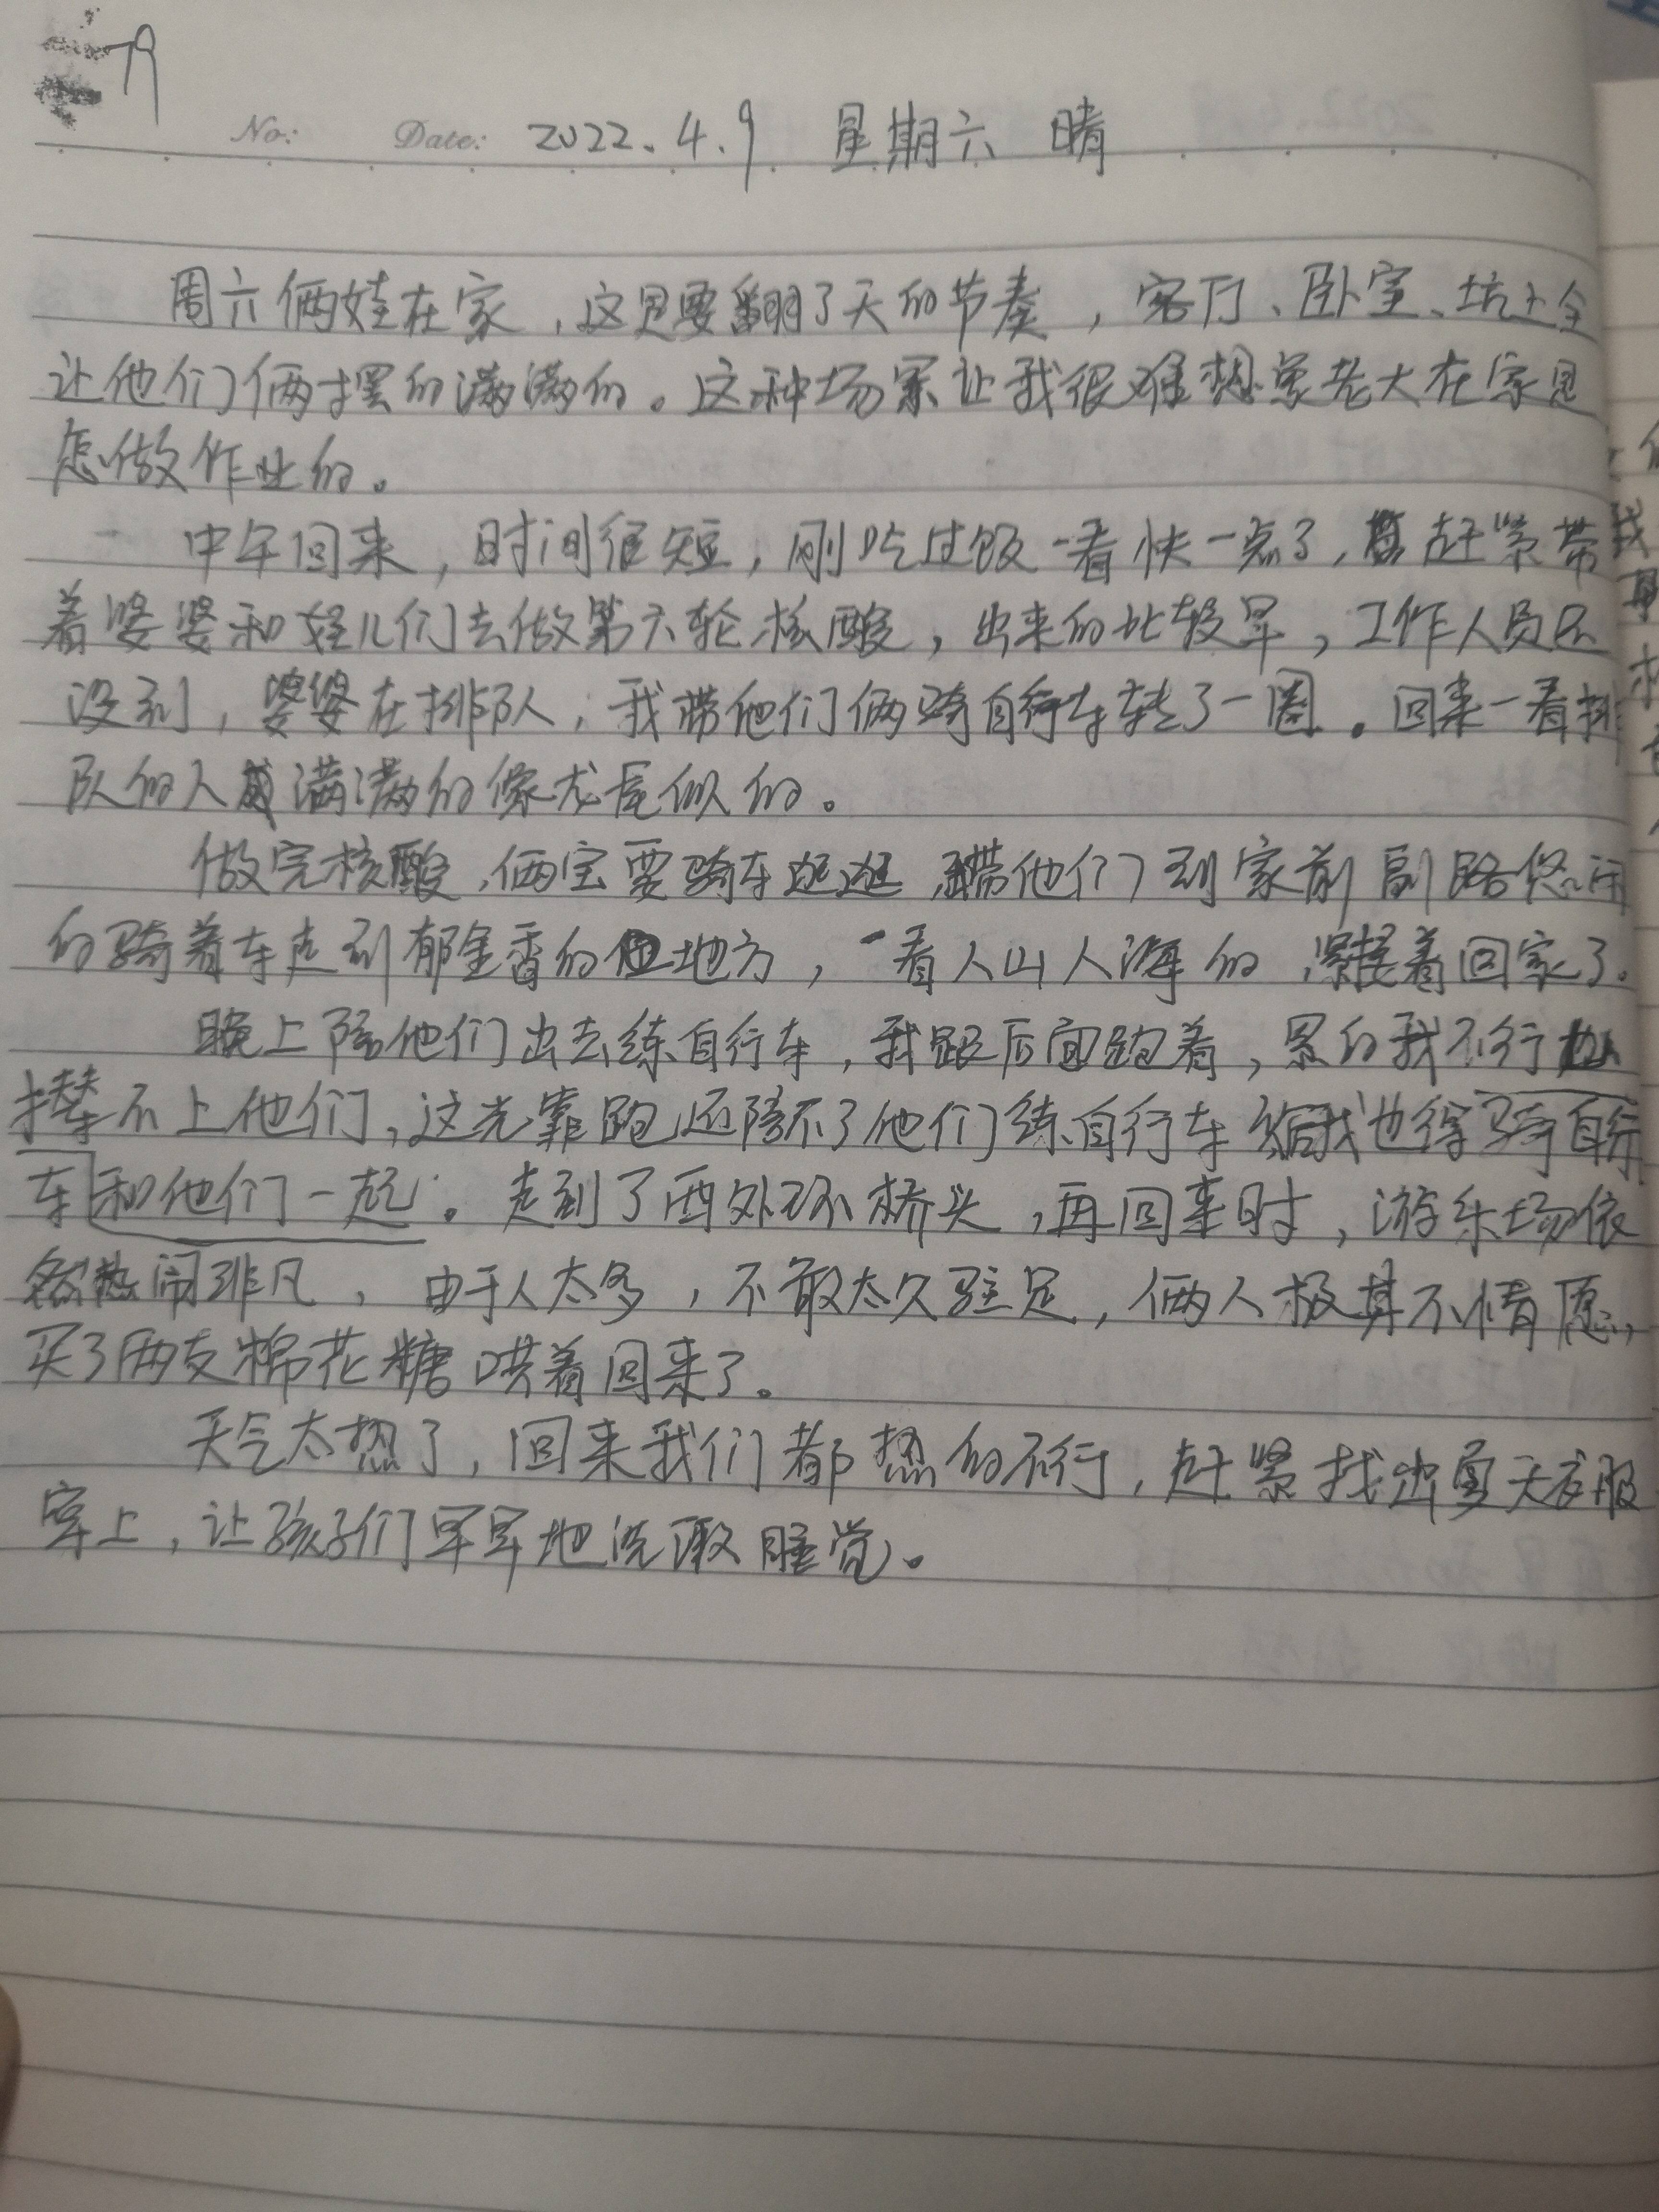 79
No: Date: 2022.4.9 星期六 晴
周六俩娃在家，这是要翻了天的节奏，客厅、卧室、坑上全
让他们俩摆的满满的。这种场景让我很难想象老大在家是
怎做作业的。
中午回来，时间很短，刚吃过饭一看快一点了，赶紧带
着婆婆和娃儿们去做第六轮核酸，出来的比较早，工作人员还
没到，婆婆在排队，我带他们俩骑自行车转了一圈。回来一看排
队的人满满的像龙尾似的。
做完核酸，俩宝要骑车逛逛，带他们到家前副路悠闲
的骑着车走到郁金香的地方，一看人山人海的，紧接着回家了。
晚上陪他们出去练自行车，我跟后面跑着，累的我不行
撵不上他们，这光靠跑还陪不了他们练自行车 我也得骑自行
车和他们一起。走到了西外环桥头，再回来时，游乐场依
然热闹非凡，由于人太多，不敢太久驻足，俩人极其不情愿，
买了两支棉花糖哄着回来了。
天气太热了，回来我们都热的不行，赶紧找出夏天衣服
穿上，让孩子们早早地洗漱睡觉。